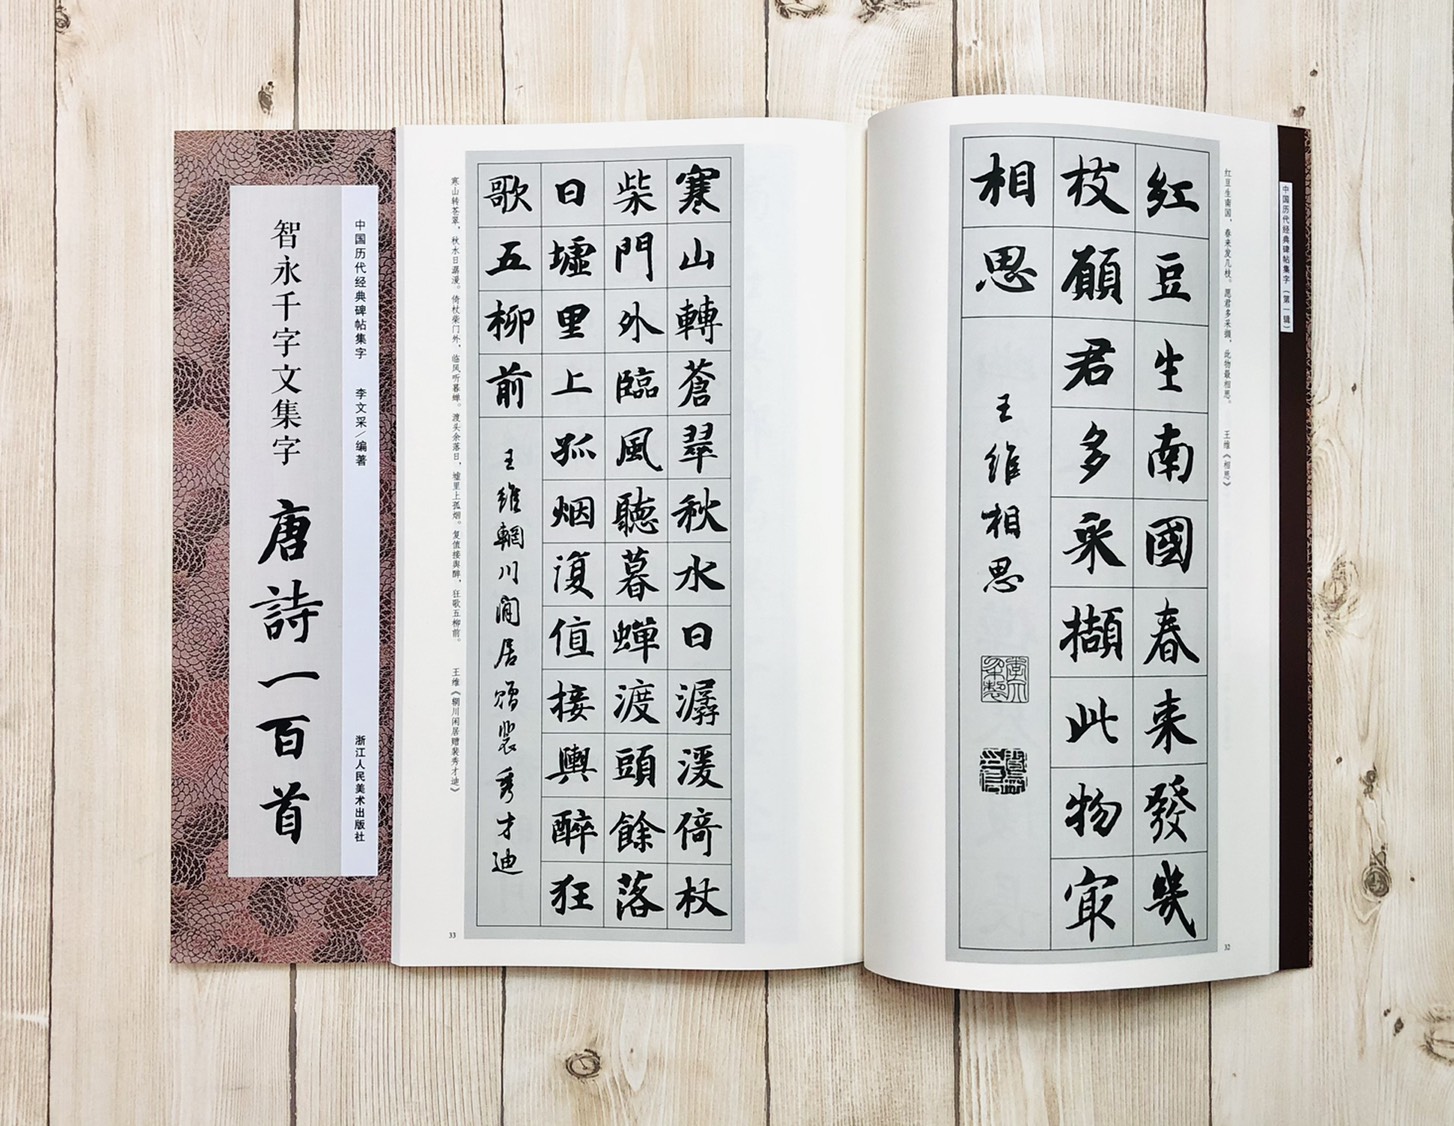 中国历代经典碑帖集字（第一辑）
红豆生南国，春来发几枝。愿君多采撷，此物最相思。 王维《相思》
紅豆生南國春来發幾
枝願君多采擷此物冣
相思
王維相思
32
寒山轉蒼翠秋水日潺湲倚杖
柴門外臨風聽暮蟬渡頭餘落
日墟里上孤烟復值接輿醉狂
歌五柳前
王維輞川閒居贈裴秀才迪
寒山转苍翠，秋水日潺湲。倚杖柴门外，临风听暮蝉。渡头余落日，墟里上孤烟。复值接舆醉，狂歌五柳前。 王维《辋川闲居赠裴秀才迪》
33
中国历代经典碑帖集字 李文采／编著 浙江人民美术出版社
智永千字文集字 唐詩一百首